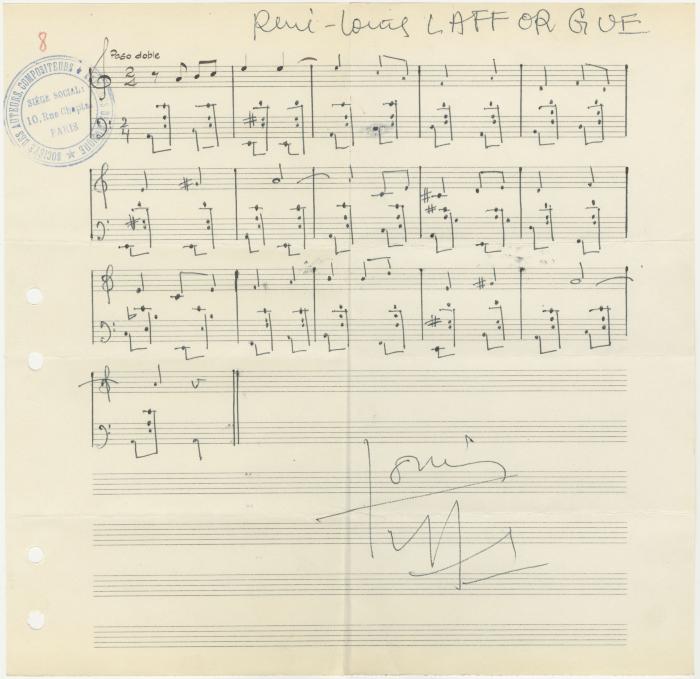 René-Louis LAFFORGUE
8
Paso doble
SOCIÉTÉ DES AUTEURS, COMPOSITEURS
SIÈGE SOCIAL:
10, Rue Chaptal
PARIS
Louis